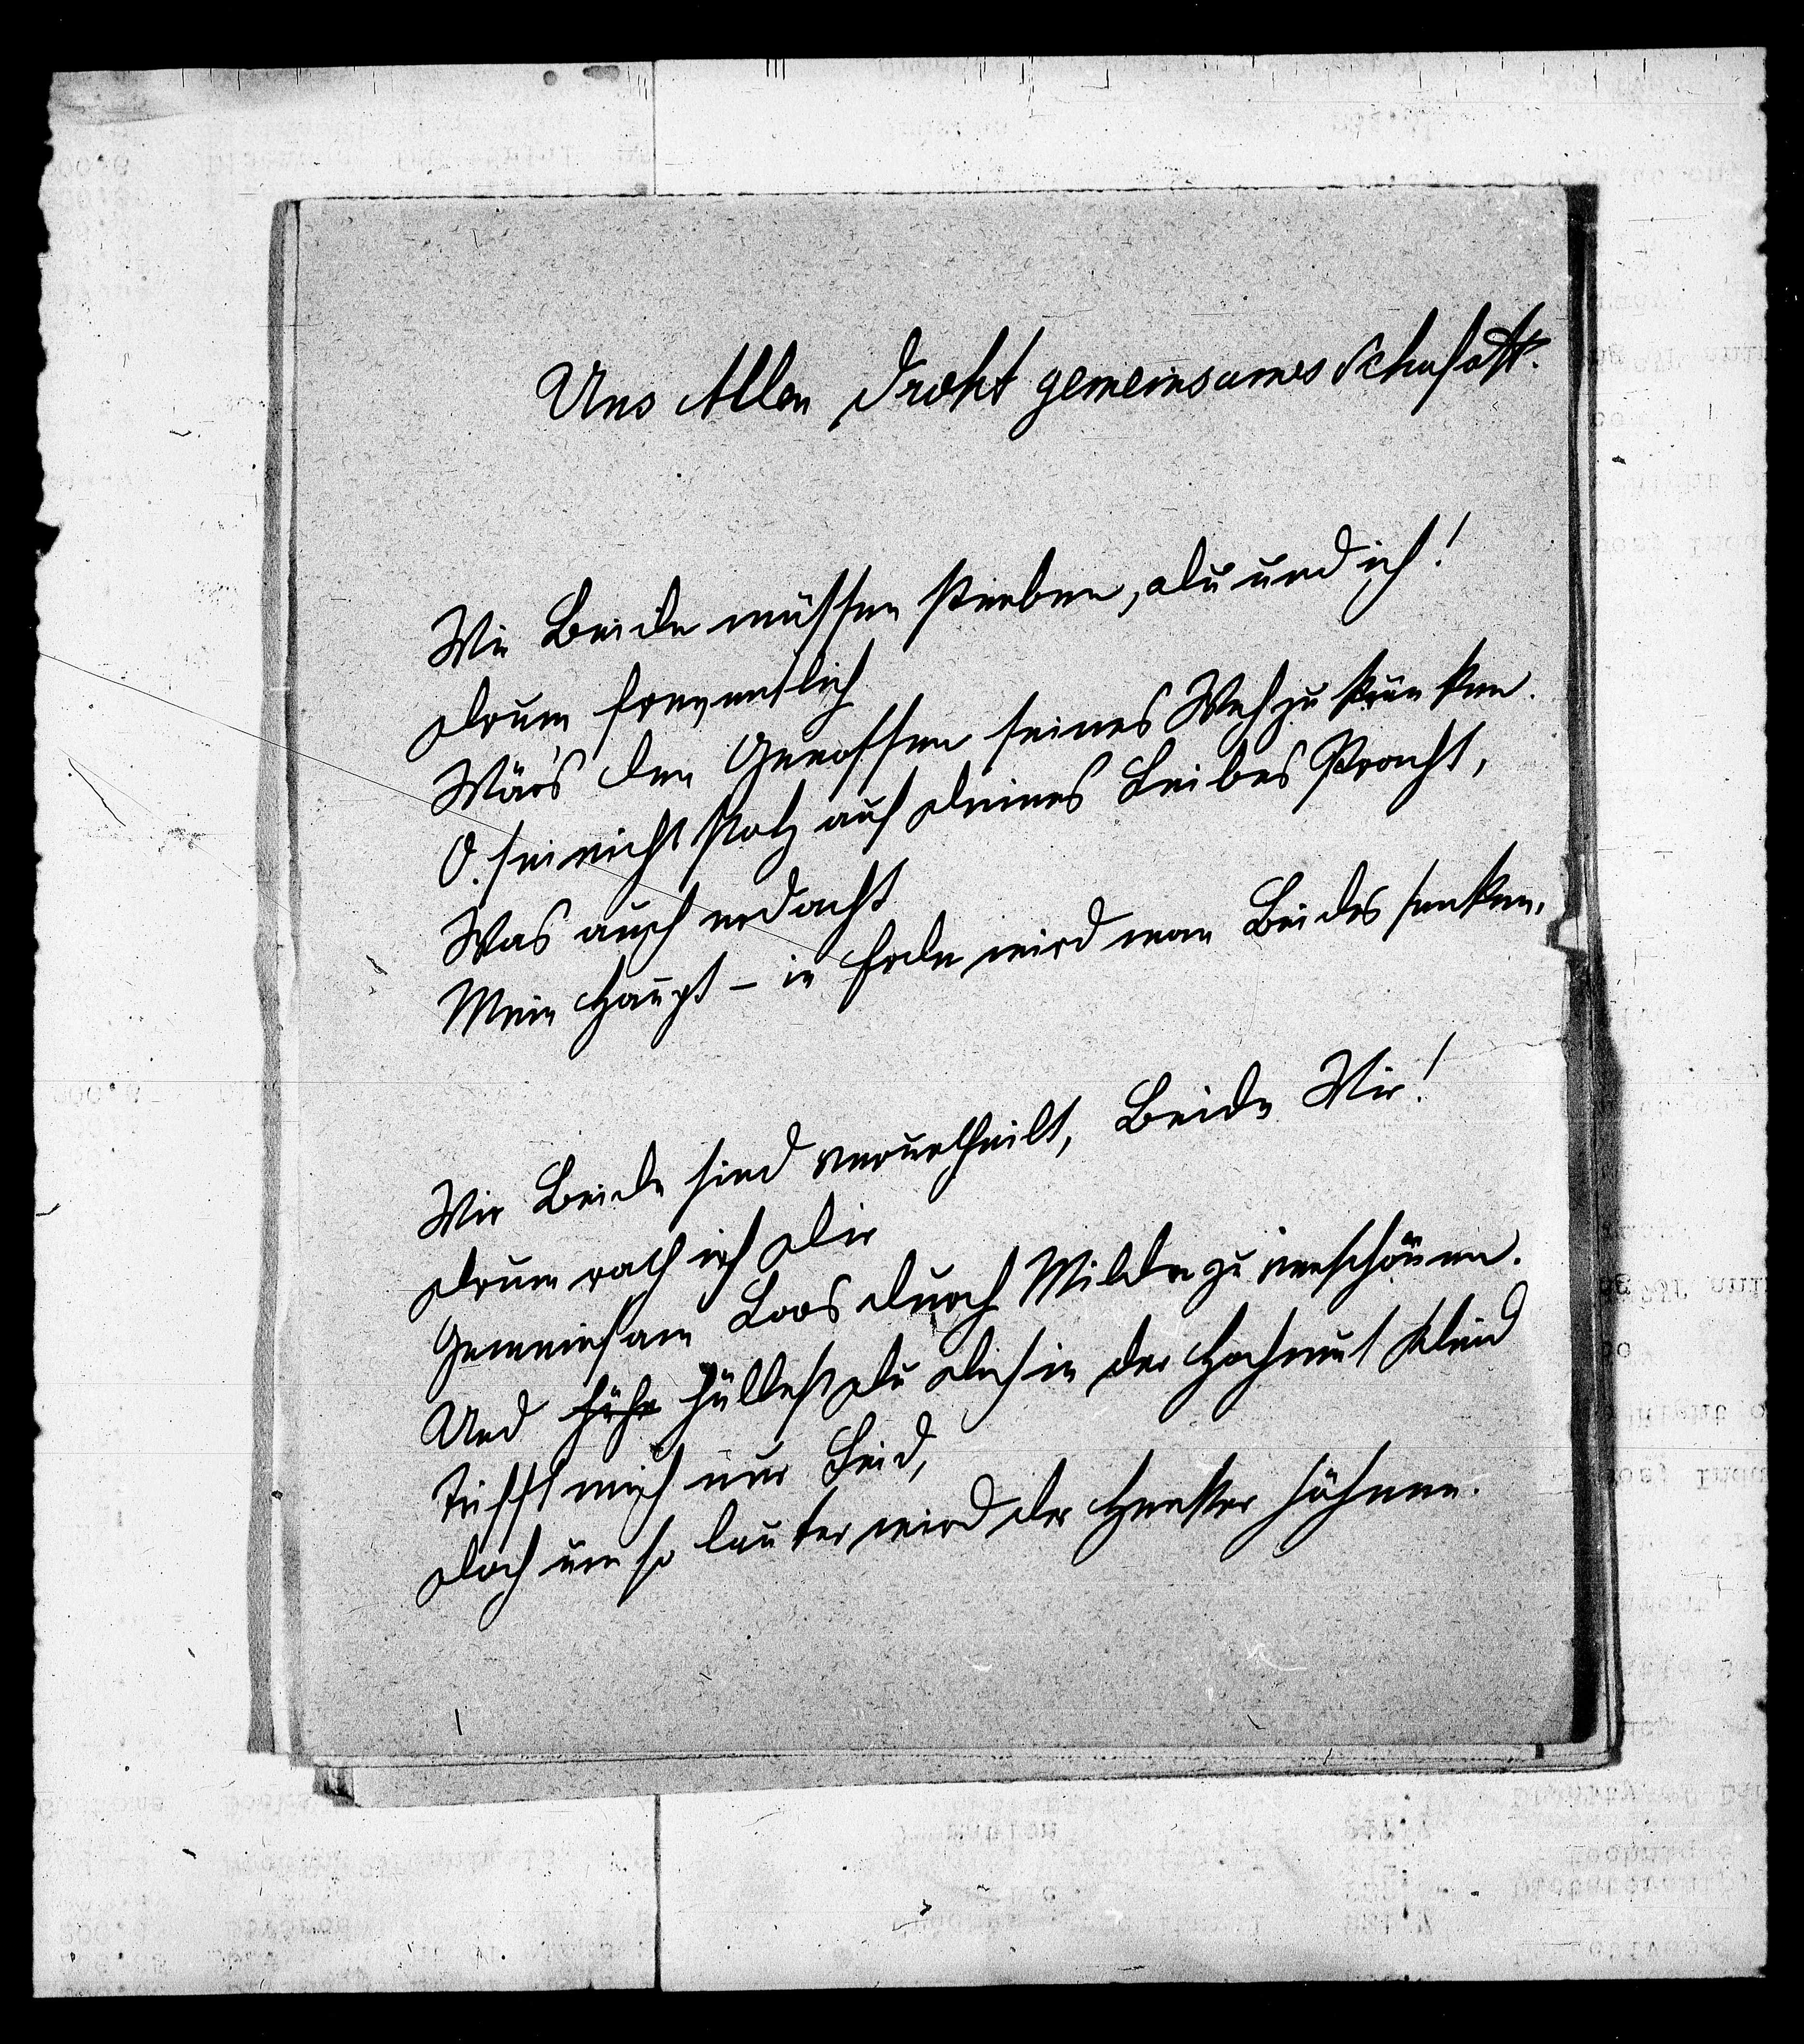 Uns Allen droht gemeinsames Schafott.
Wir Beide müssen sterben, du und ich!
Drum freventlich
Wär's den Genossen seines Weh zu kränken.
O. sei nicht stolz auf deines Leibes Pracht,
Was auch erdacht
Mein Haupt – in Erde wird man Beides senken.
Wir Beide sind verurtheilt, Beide Wir!
Drum rath ich Dir
Gemeinsam Loos durch Milde zu verschönen.
Und hüllest du dich in der Hochmut Kleid
Trifft mich nur Leid,
Doch um so lauter wird der Henker höhnen.